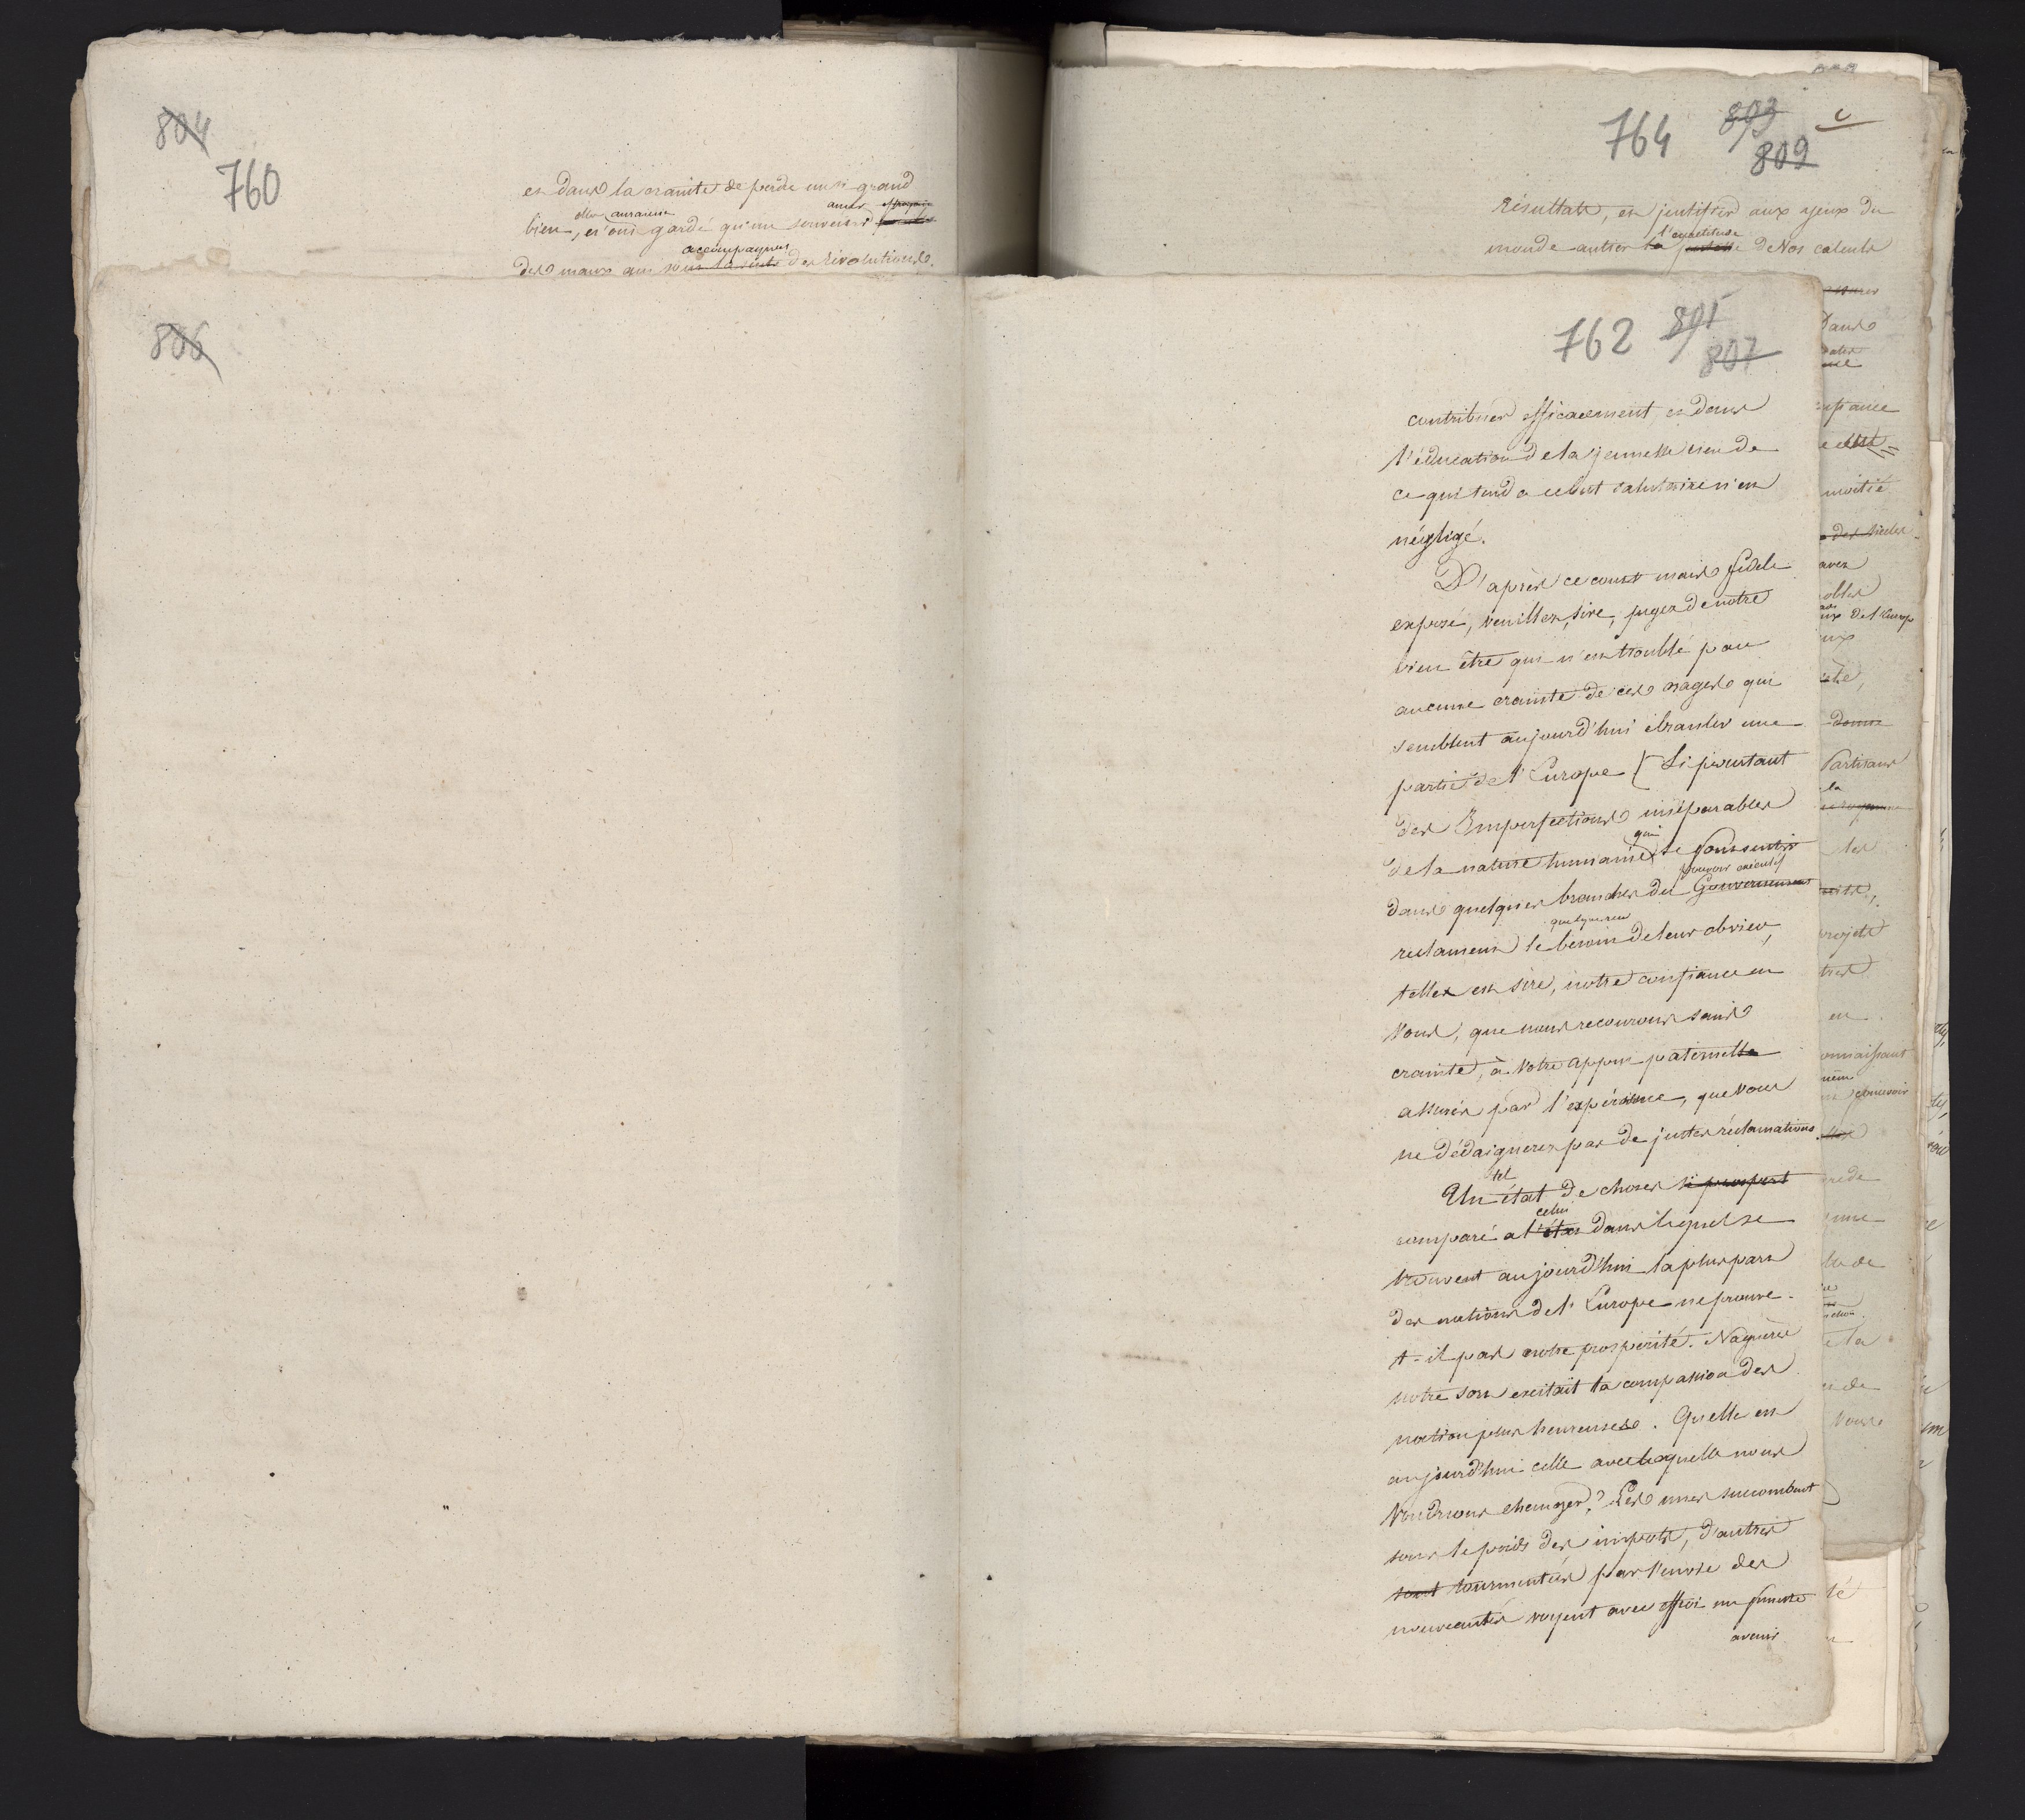 804
760
et dans la crainte de perdre un si grand
elles auraient amer
bien, n'ont gardé qu'un souvenir
accompagnent
des maux qui sont la suite des Révolutions.
806
764 803 809
résultats, et justifier aux yeux du
l'exactitude
monde entier la justesse de Nos calculs
762 805
807
contribuer efficacement, et dans
l'éducation de la jeunesse rien de
ce qui tend a ce but salutaire n'est
négligé.
D'après ce court mais fidele
exposé, veuillez, sire, juger de notre
bien être qui n'est troublé par
aucune crainte de ces orages qui
semblent aujourd'hui ébranler une
partie de l'Europe Si pourtant
des Imperfections inséparables
qui
de la nature humaine se font sentir
pouvoir exécutif
dans quelques branches du Gouvernement
reclament le besoin de leur obvier,
telle est sire, notre confiance en
Vous, que nous recourons sans
crainte, à Votre appui paternelle
assurés par l'expérience, que Vous
ne dédaignerez pas de justes réclamations.
tel
Un état de choses si prospère
celui
comparé a l'état dans lequel se
trouvent aujourd'hui la plus part
des nations de l'Europe ne prouve-
t-il pas notre prosperité. Naguères
notre sort excitait la compassion des
nations plus heureuses. Quelle est
aujourd'hui celle avec laquelle nous
Voudrions changer? Les unes succombent
sous le poids des impots, d'autres
sont tourmentées par l'envie des
nouveautés voyent avec effroi un funeste
avenir